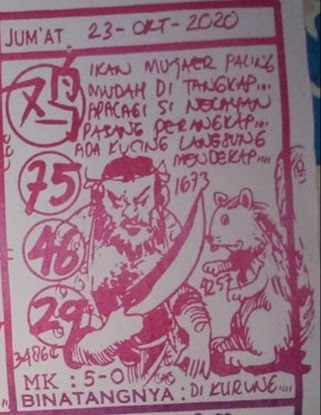 JUM'AT 23 - OKT - 2020
IKAN MUJAER PALING
MUDAH DI TANGKAP....
APALAGI SI NELAYAN
PASANG PERANGKAP...
ADA KUCING LANGSUNG
MENDEKAP....
75
1673
46
4252
29
3486
MK : 5-0
BINATANGNYA : DI KURUNG....